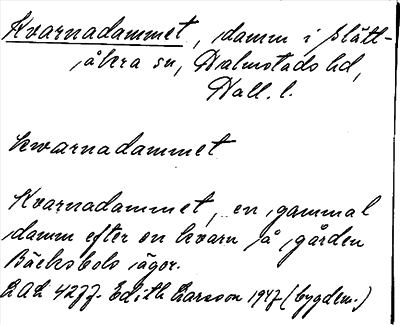 Kvarnadammet, damm i Slätt-
åkra sn, Halmstads hd,
Hall. l.
kwarnadammet
Kvarnadammet, en gammal
damm efter en kvarn på gården
Bäcksbols ägor.
LAL 4277. Edith Larsson 1947 (bygdem.)